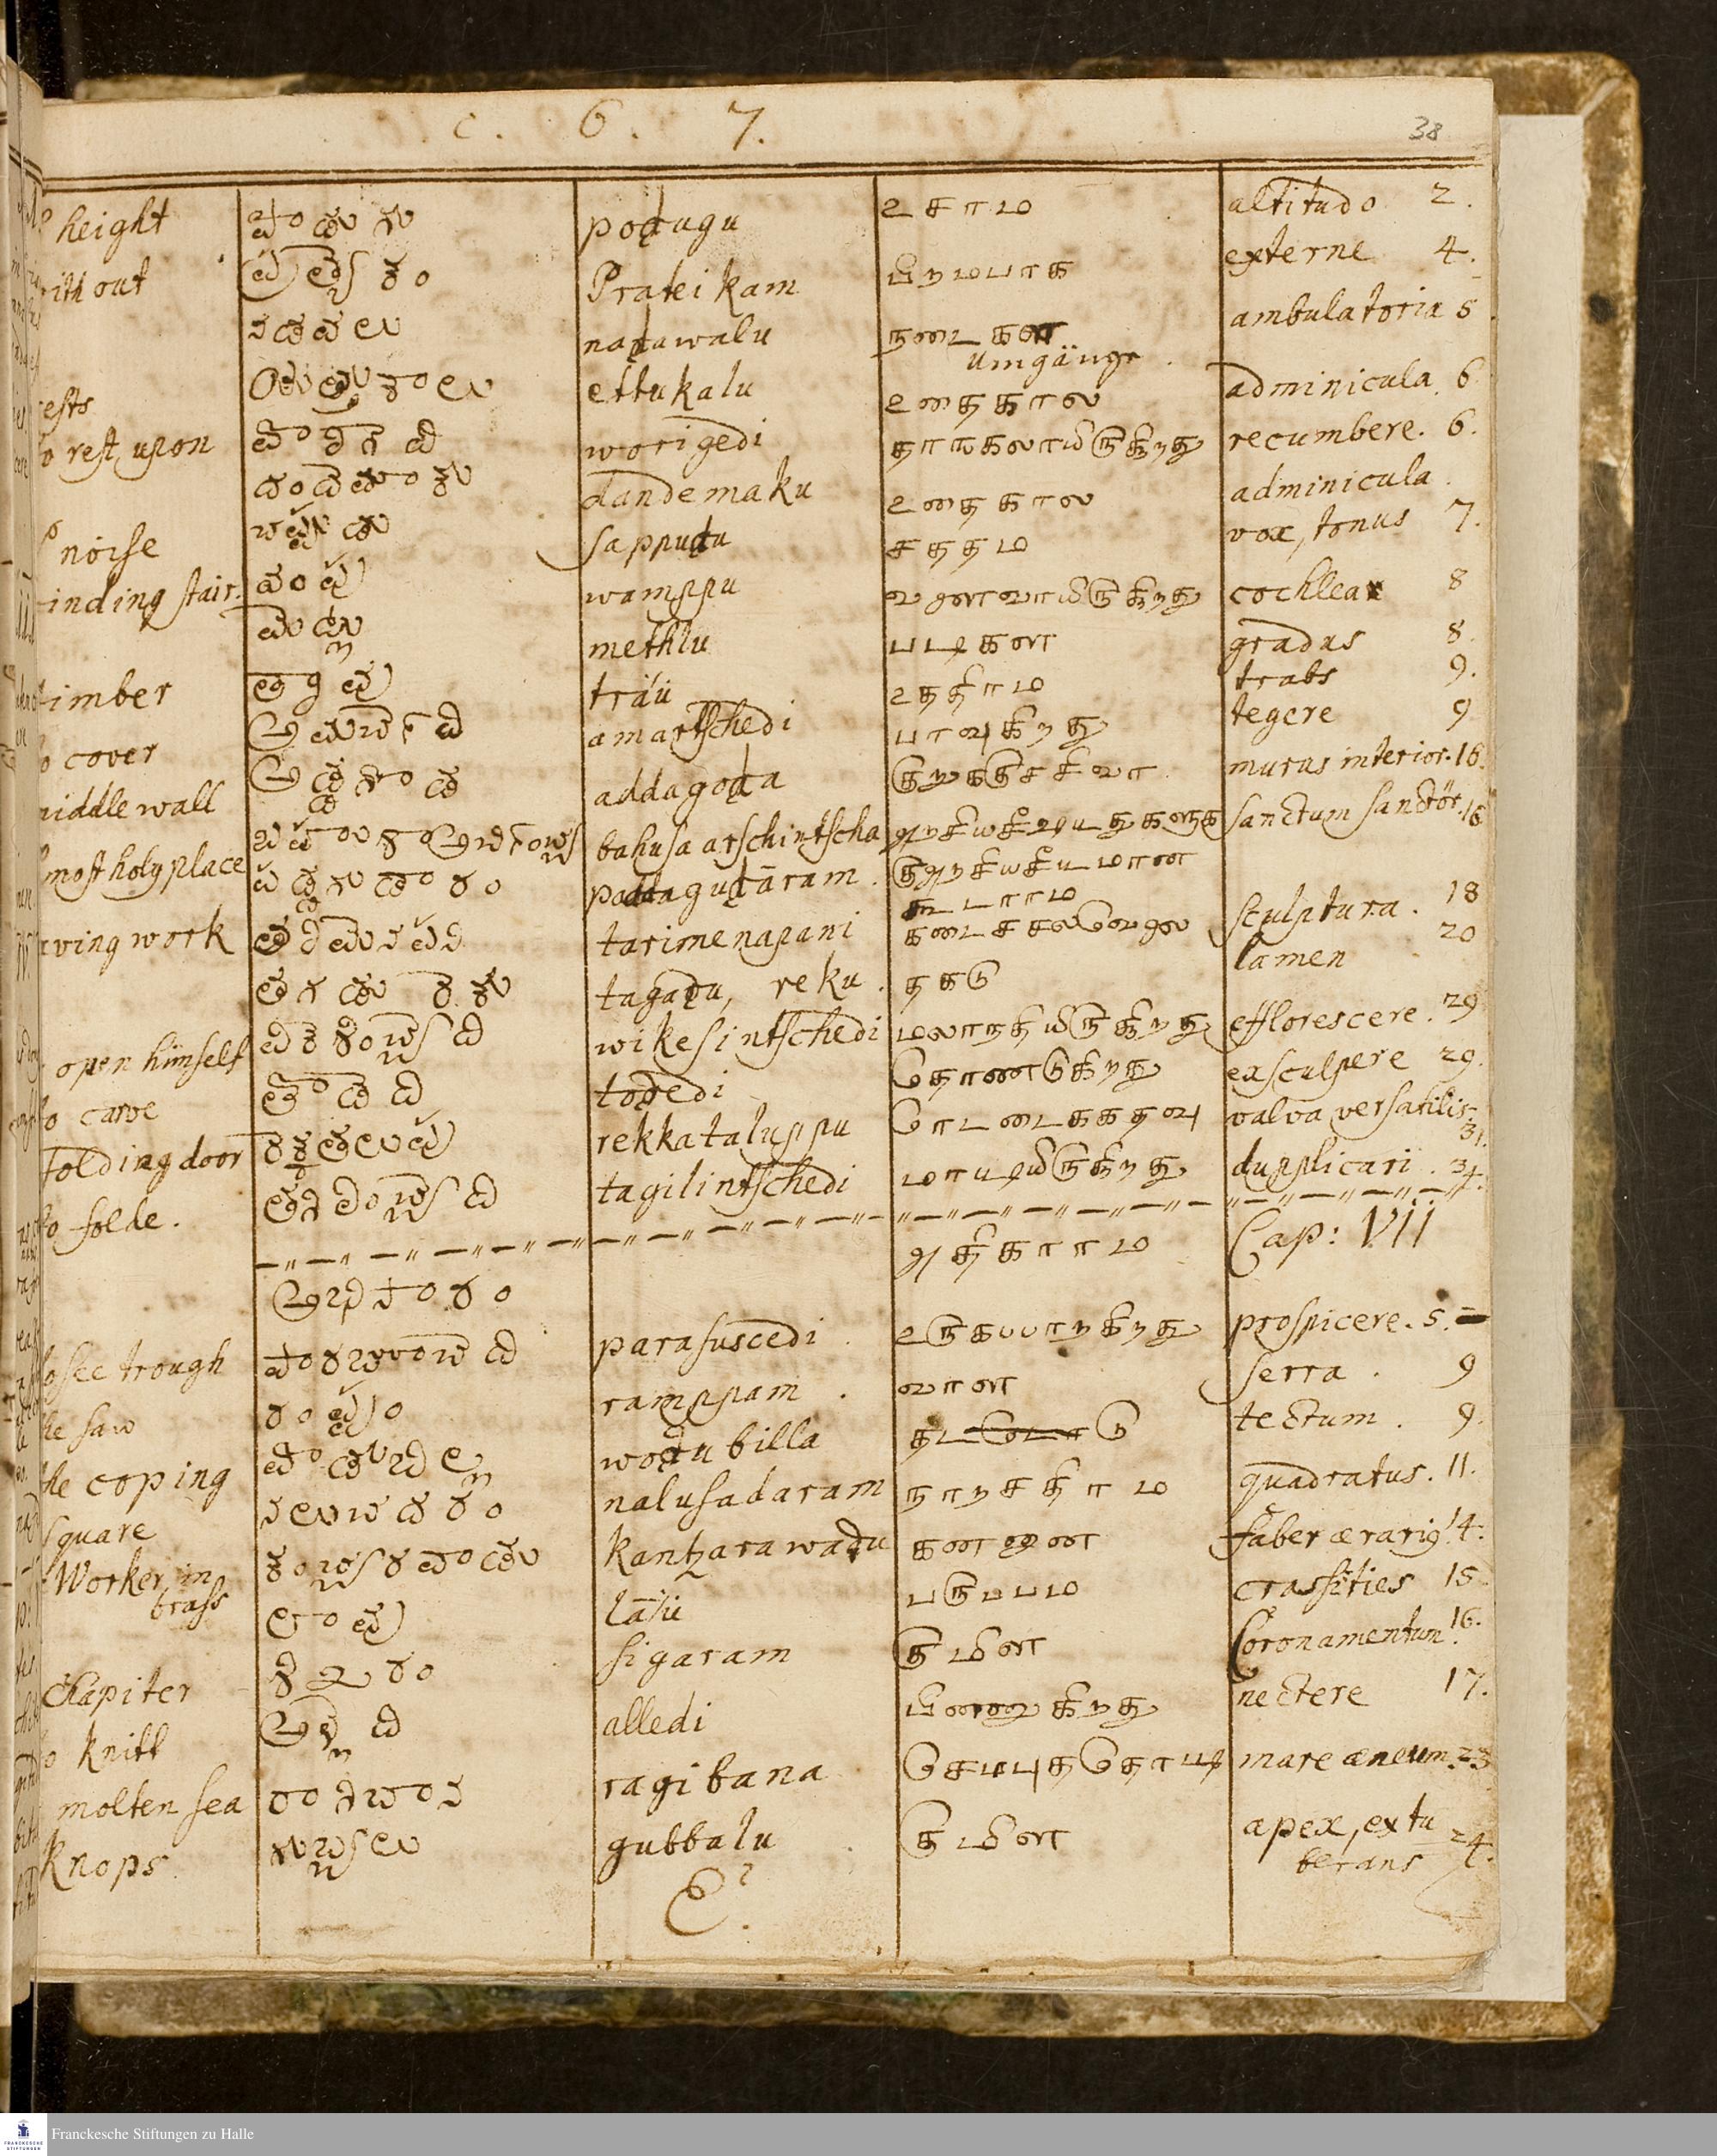 c. 6. 7.
38
height పొడుగు podugu உசரம altitudo 2.
without ప్రత్యేకం Prateikam பிறமபாக externe 4.
నడవలు nadawalu நடைகள ambulatoria 5.
umgänge
rests ఎత్తుకాలు ettukalu உதைகால adminicula. 6
to rest upon ఒరిగెది worigedi தாஙகலாயிருககிறது recumbere. 6.
దండెమాకు dandemaku உதைகால adminicula.
noise సప్పుడు sappudu சததம vox, tonus 7.
winding stair. వంపు wamppu வளைவாயிருககிறது cochlear 8
మెట్లు methlu படிகள gradus 8.
timber trāü உததிரம trabs 9.
to cover amartschedi பாவுகிறது tegere 9
middle wall అడ్డగోడ addagoda குறுககுசசிவர murus interior. 16.
most holy place bahusa arschintscha sanctum sanctor. 16
paddagudāram. கூடாரம
carving work తరిమెనపని tarimenapani sculptura. 18
తగడు రేకు tagadu, reku. தகடு lamen 20
open himself వికసించెది wikesintschedi மலரநதியிருககிறது efflorescere. 29
to carve తోడెది todedi தோணடுகிறது exsculpere 29.
Folding door రెక్కతలుపు rekkataluppu ரெடடைககதவு valva versatilis. 31.
to folde. tagilintschedi மாடியிருககிறது duplicari. 34.
అధికారం அதிகாரம Cap: VII
to see trough parasuscedi உருகபபாறகிறது prospicere. 5.
the saw రంప్పం ramppam. வாள serra. 9
the coping ఓడుబిల్ల wodu billa tectum. 9.
square నలుసదరం nalusadaram நாறசதிரம quadratus. 11.
Worker in కంచరవాడు kantzarawadu கனனான faber ærarig 14.
brass
లావు lāü பருபபம crassities 15
Chapiter శిఖరం sigaram குமிள Coronamentum 16.
to knitt అల్లెది alledi பினனுகிறது nectere 17.
molten sea రాగిబాన ragi bana செமபுததொடடி mare æneum. 23
Knops గుబ్బలు gubbalu குமிள apex, extu
berans 24.
Franckesche Stiftungen zu Halle